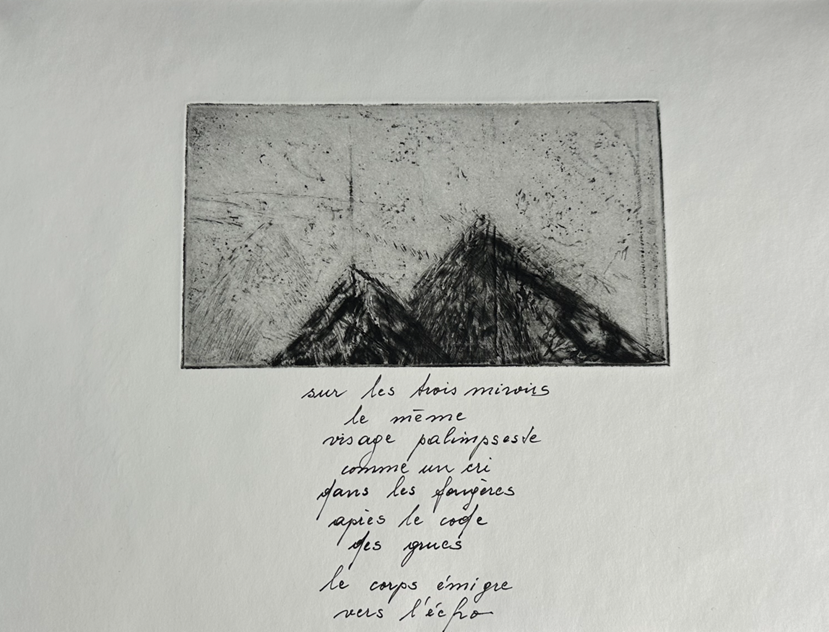 sur les trois miroirs
le même
visage palimpseste
comme un cri
dans les fougères
après le code
des grues
le corps émigre
vers l'écho